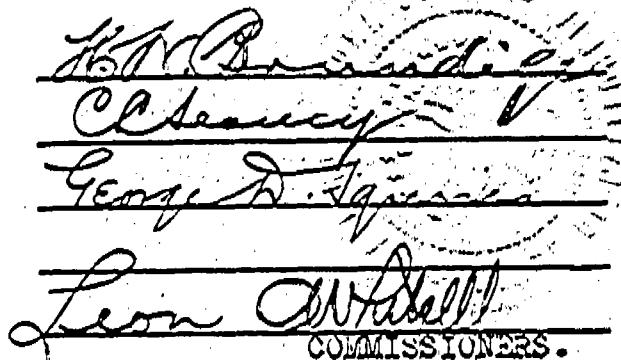 H. W. Brundige
C C Seavey
George D. Squires
Leon Whitsell
COMMISSIONERS.